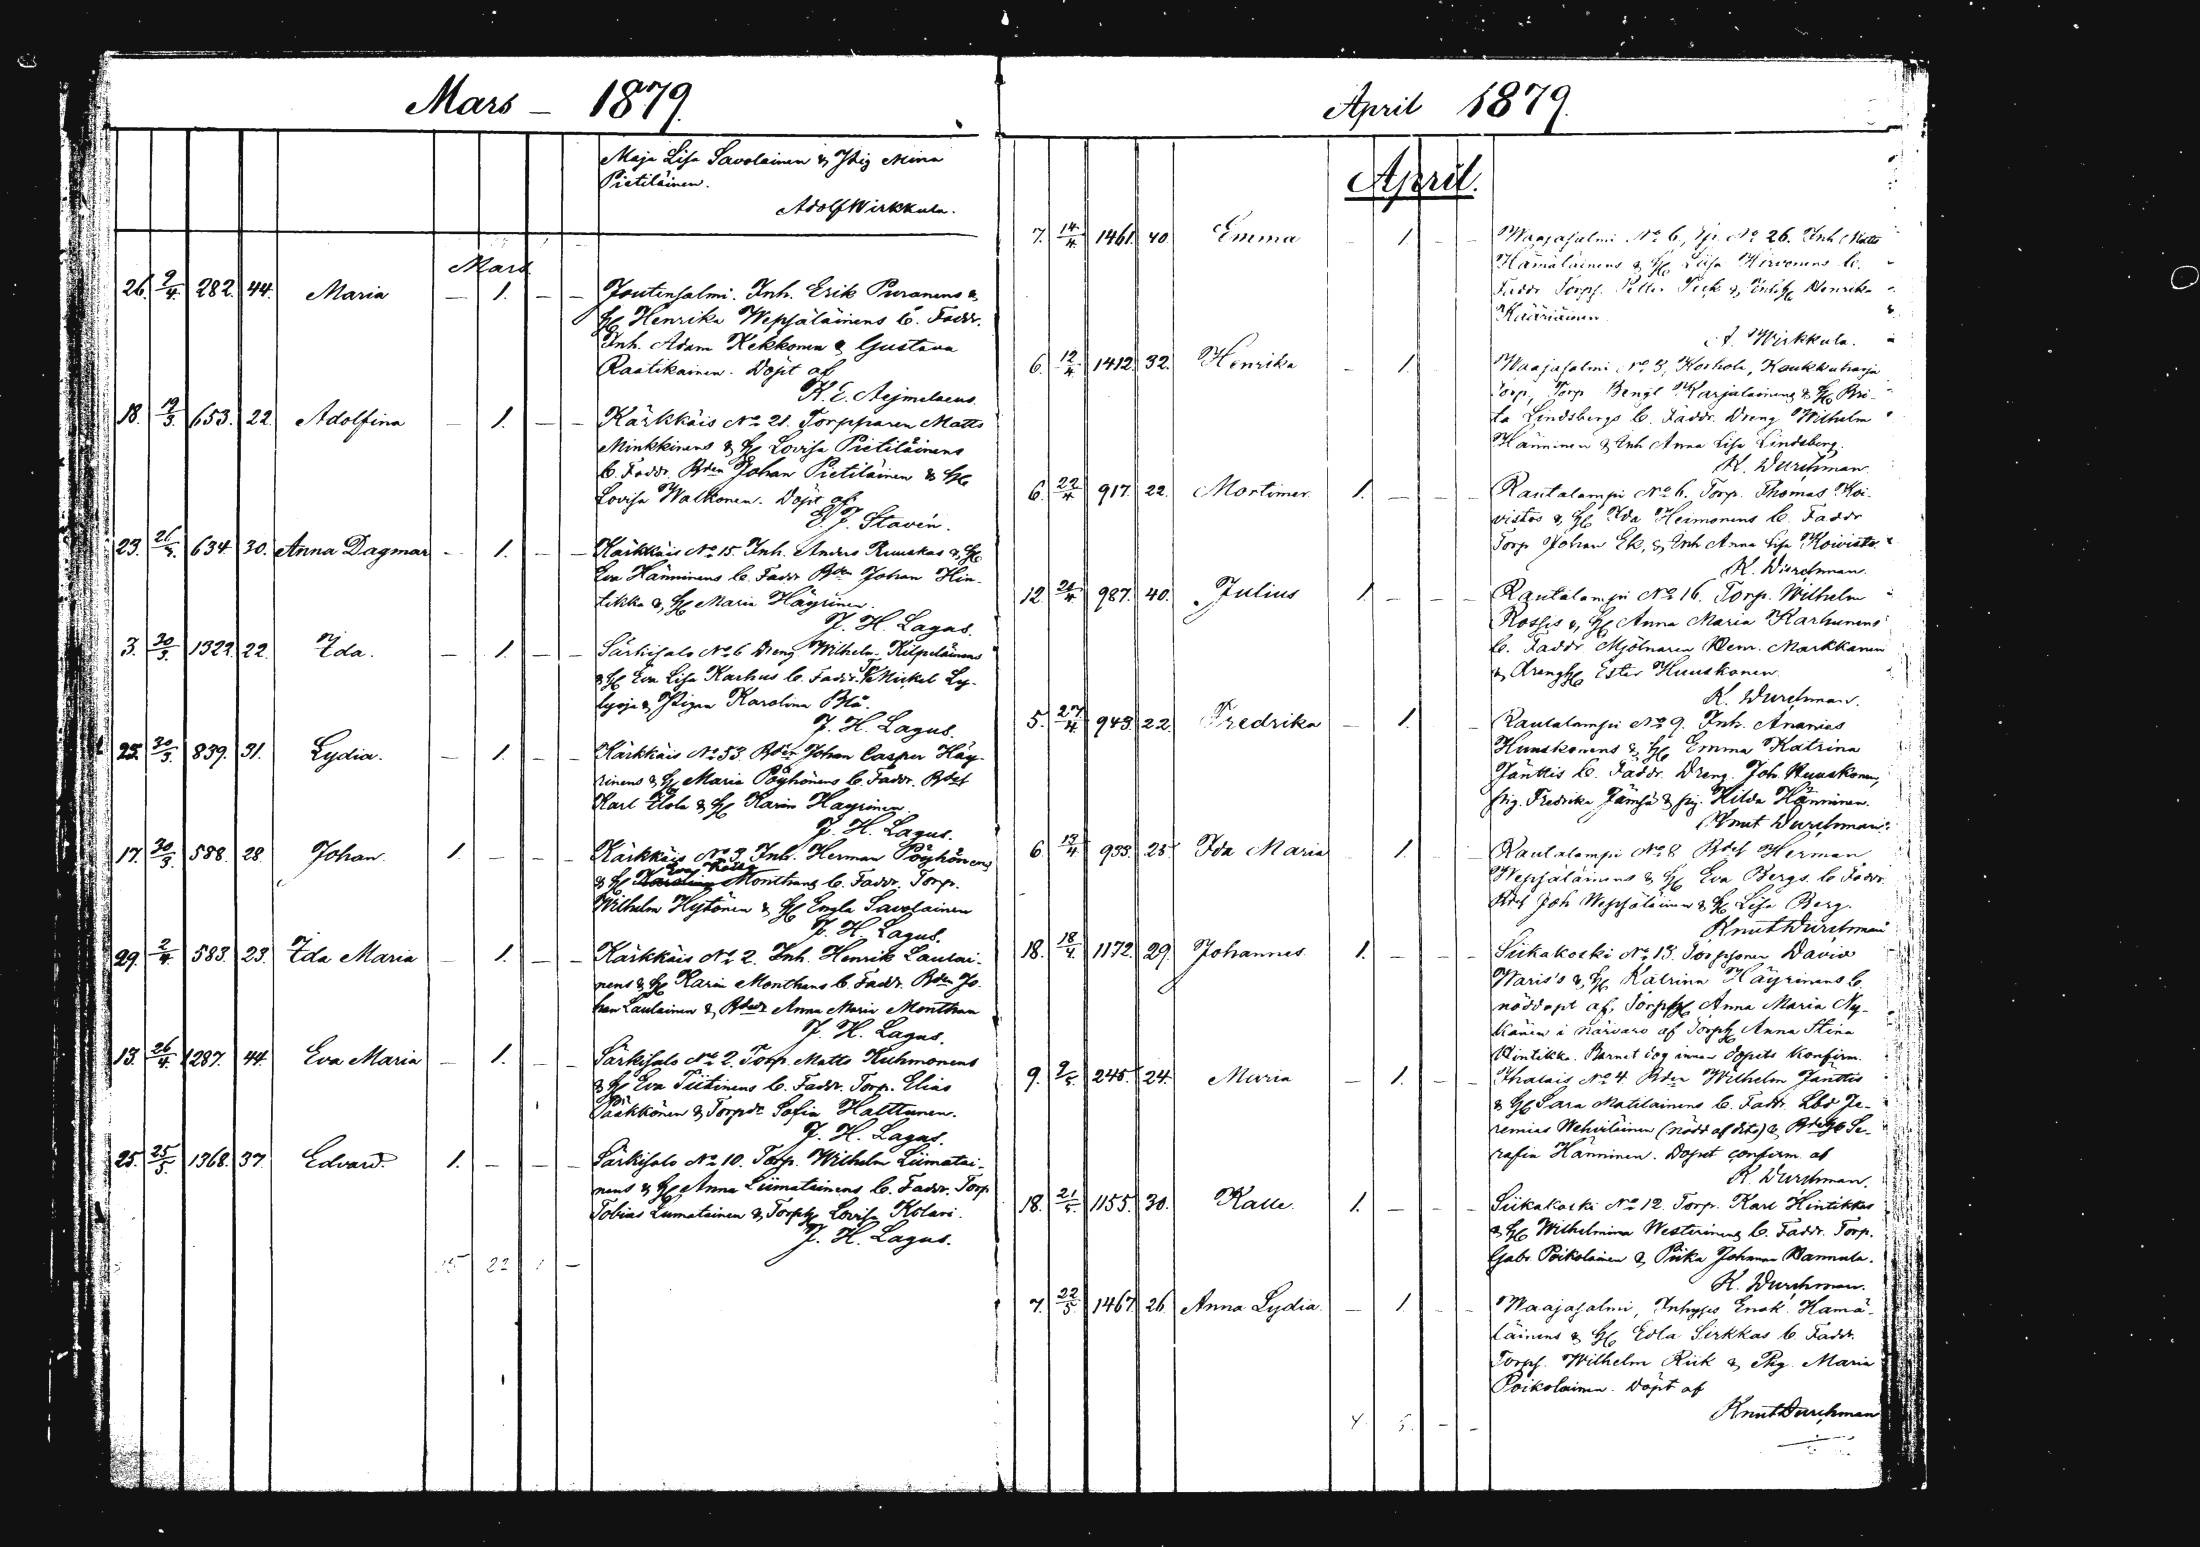 Mars – 1879.
Maja Lisa Savolainen & Pig Mina
Pietiläinen.
Adolf Wirkkula.
Mars
26. 9/4. 282. 44. Maria – 1. – – Joutensalmi. Inh. Erik Puranens &
H Henrika Wepsäläinens b. Faddr.
Inh. Adam Kekkonen & Gustava
Raatikainen. Döpt af
K. E. Aejmelaeus.
18. 19/3. 653. 22. Adolfina – 1. – – Kärkkäis No 21. Torpparen Matts
Minkkinens & H Lovisa Pietiläinens
b. Faddr. Bden Johan Pietiläinen & H
Lovisa Walkonen. Döpt af
E. J. Stavén.
23. 26/3. 634 30. Anna Dagmar – 1. – – Kärkkäis No 15. Inh. Anders Ruuskas & H
Eva Hänninens b. Faddr Bden Johan Hin-
tikka & H Maria Häyrinen.
J. H. Lagus.
3. 30/3. 1322. 22. Ida. – 1. – – Särkisalo No 6 Dreng Wilhelm Kilpeläinens
& H Eva Lisa Karhus b. Faddr. Mickel Ly-
lyoja & Pigan Karolina Blå.
J. H. Lagus.
25. 30/3. 839. 31. Lydia. – 1. – – Kärkkäis No 53. Bden Johan Casper Häy-
rinens & H Maria Pöyhönens b. Faddr. Bdes
Karl Hola & H Karin Hayrinen.
J. H. Lagus.
17. 30/3. 588. 28. Johan 1. – – – Kärkkäis No 3. Inh. Herman Pöyhönens
& H Karolina Monthans b. Faddr. Torp.
Wilhelm Hytönen & H Engla Savolainen
J. H. Lagus.
29. 2/4. 583. 23. Ida Maria – 1. – – Kärkkäis No 2. Inh. Henrik Laulai-
nens & H Karin Monthans b. Faddr. Bden Jo-
han Laulainen & Anna Maria Monthan
J. H. Lagus.
13. 26/4. 1287. 44. Eva Maria – 1. – – Särkisalo No 2. Torp. Matts Kuhmonens
& H Eva Tiitinens b. Faddr. Torp. Elias
Pääkkönen & Torpdr Sofia Halttunen.
J. H. Lagus.
25. 25/5. 1368. 37. Edvard. 1. – – – Särkisalo No 10. Torp. Wilhelm Liimatai-
nens & H Anna Liimatainens b. Faddr. Torp
Tobias Liimatainen & TorpH Lovisa Kolari.
J. H. Lagus.
15 22 1 –
April 1879.
April.
7. 14/4. 1461. 40. Emma – 1. – – Waajasalmi No 6, No 26. Inh Matts
Hämäläinens & H Lisa Hirvonens b.
Faddr Torps. Petter Piek & Henrika
Kääriäinen.
A. Wirkkula.
6. 12/4 1412. 32. Henrika – 1. Waajasalmi No 3, Korhola, Koukkuharja
Torp, Torp Bengt Karjalainens & H Bri-
ta Lindsbergs b. Faddr. Dreng Wilhelm
Hänninen & Inh Anna Lisa Lindsberg.
K. Durchman.
6. 22/4 917. 22. Mortimer. 1. – – – Rautalampi No 6. Torp. Thomas Koi-
vistos & H Ida Hermonens b. Faddr
Torp Johan Ek, & Inh Anna Lisa Koivisto.
K. Durchman.
12. 21/4. 987. 40. Julius 1. – – – Rautalampi No 16. Torp. Wilhelm
Rossis & H Anna Maria Karhunens
b. Faddr Mjölnaren Henr. Markkanen
& DrengH Ester Huuskonen.
K. Durchman.
5. 27/4. 943. 22. Fredrika – 1. – Rautalampi No 9. Inh. Ananias
Huuskonens & H Emma Katrina
Jänttis b. Faddr. Dreng. Joh. Huuskonen,
pig. Fredrika Jämsä & pig. Hilda Hänninen.
Knut Durchman.
6. 13/4 933. 25. Ida Maria 1. – Rautalampi No 8 Bdes Herman
Wepsäläinens & H Eva Bergs b. Faddr.
Bdes Joh Wepsäläinen & H Lisa Berg.
Knut Durchman
18. 18/4. 1172. 29. Johannes. 1. – – – Siikakoski No 13. Torpparen David
Waris's & H Katrina Häyrinens b.
nöddöpt af TorpH Anna Maria Ny-
känen i närvaro af TorpH Anna Stina
Hintikka. Barnet dog innan döpets konfirm.
9. 9/5. 245. 24. Maria – 1. – – Ihalais No 4. Bden Wilhelm Jänttis
& H Sara Matilainens b. Faddr. Lbd Je-
remias Wehviläinen (nödd af dito) & Se-
rafia Hänninen. Döpet confirm. af
K. Durchman.
18. 21/5. 1155. 30. Kalle. 1. – – – Siikakoski No 12. Torp. Karl Hintikkas
& H Wilhelmina Westerinens b. Faddr. Torp.
Gabr Poikolainen & Piika Johanna Hannula.
K. Durchman.
7. 22/5 1467. 26. Anna Lydia. – 1. – – Waajasalmi, Inhyses Enok Hämä-
läinens & H Edla Sirkkas b. Faddr.
Torps. Wilhelm Riik & Pig. Maria
Poikolainen. Döpt af
Knut Durchman
4. 5. – –